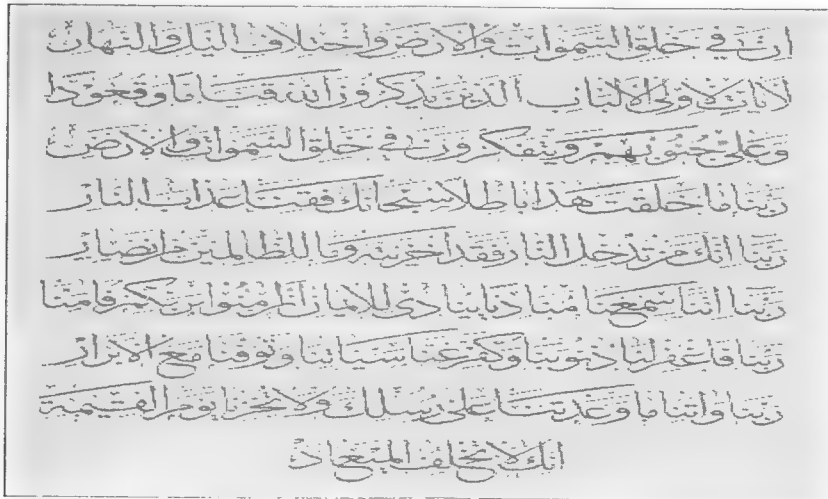 ان في خلق السموات والارض واختلاف اليل والنهار
لايات لاولى الالباب الذين يذكرون الله قياما وقعودا
وعلى جنوبهم ويتفكرون في خلق السموات والارض
ربنا ما خلقت هذا باطلا سبحانك فقنا عذاب النار
ربنا انك من تدخل النار فقد اخزيته وما للظالمين من انصار
ربنا اننا سمعنا مناديا ينادى للايمان ان امنوا بربكم فامنا
ربنا فاغفر لنا ذنوبنا وكفر عنا سياتنا وتوفنا مع الابرار
ربنا واتنا ما وعدتنا على رسلك ولا تخزنا يوم القيمة
انك لا تخلف الميعاد